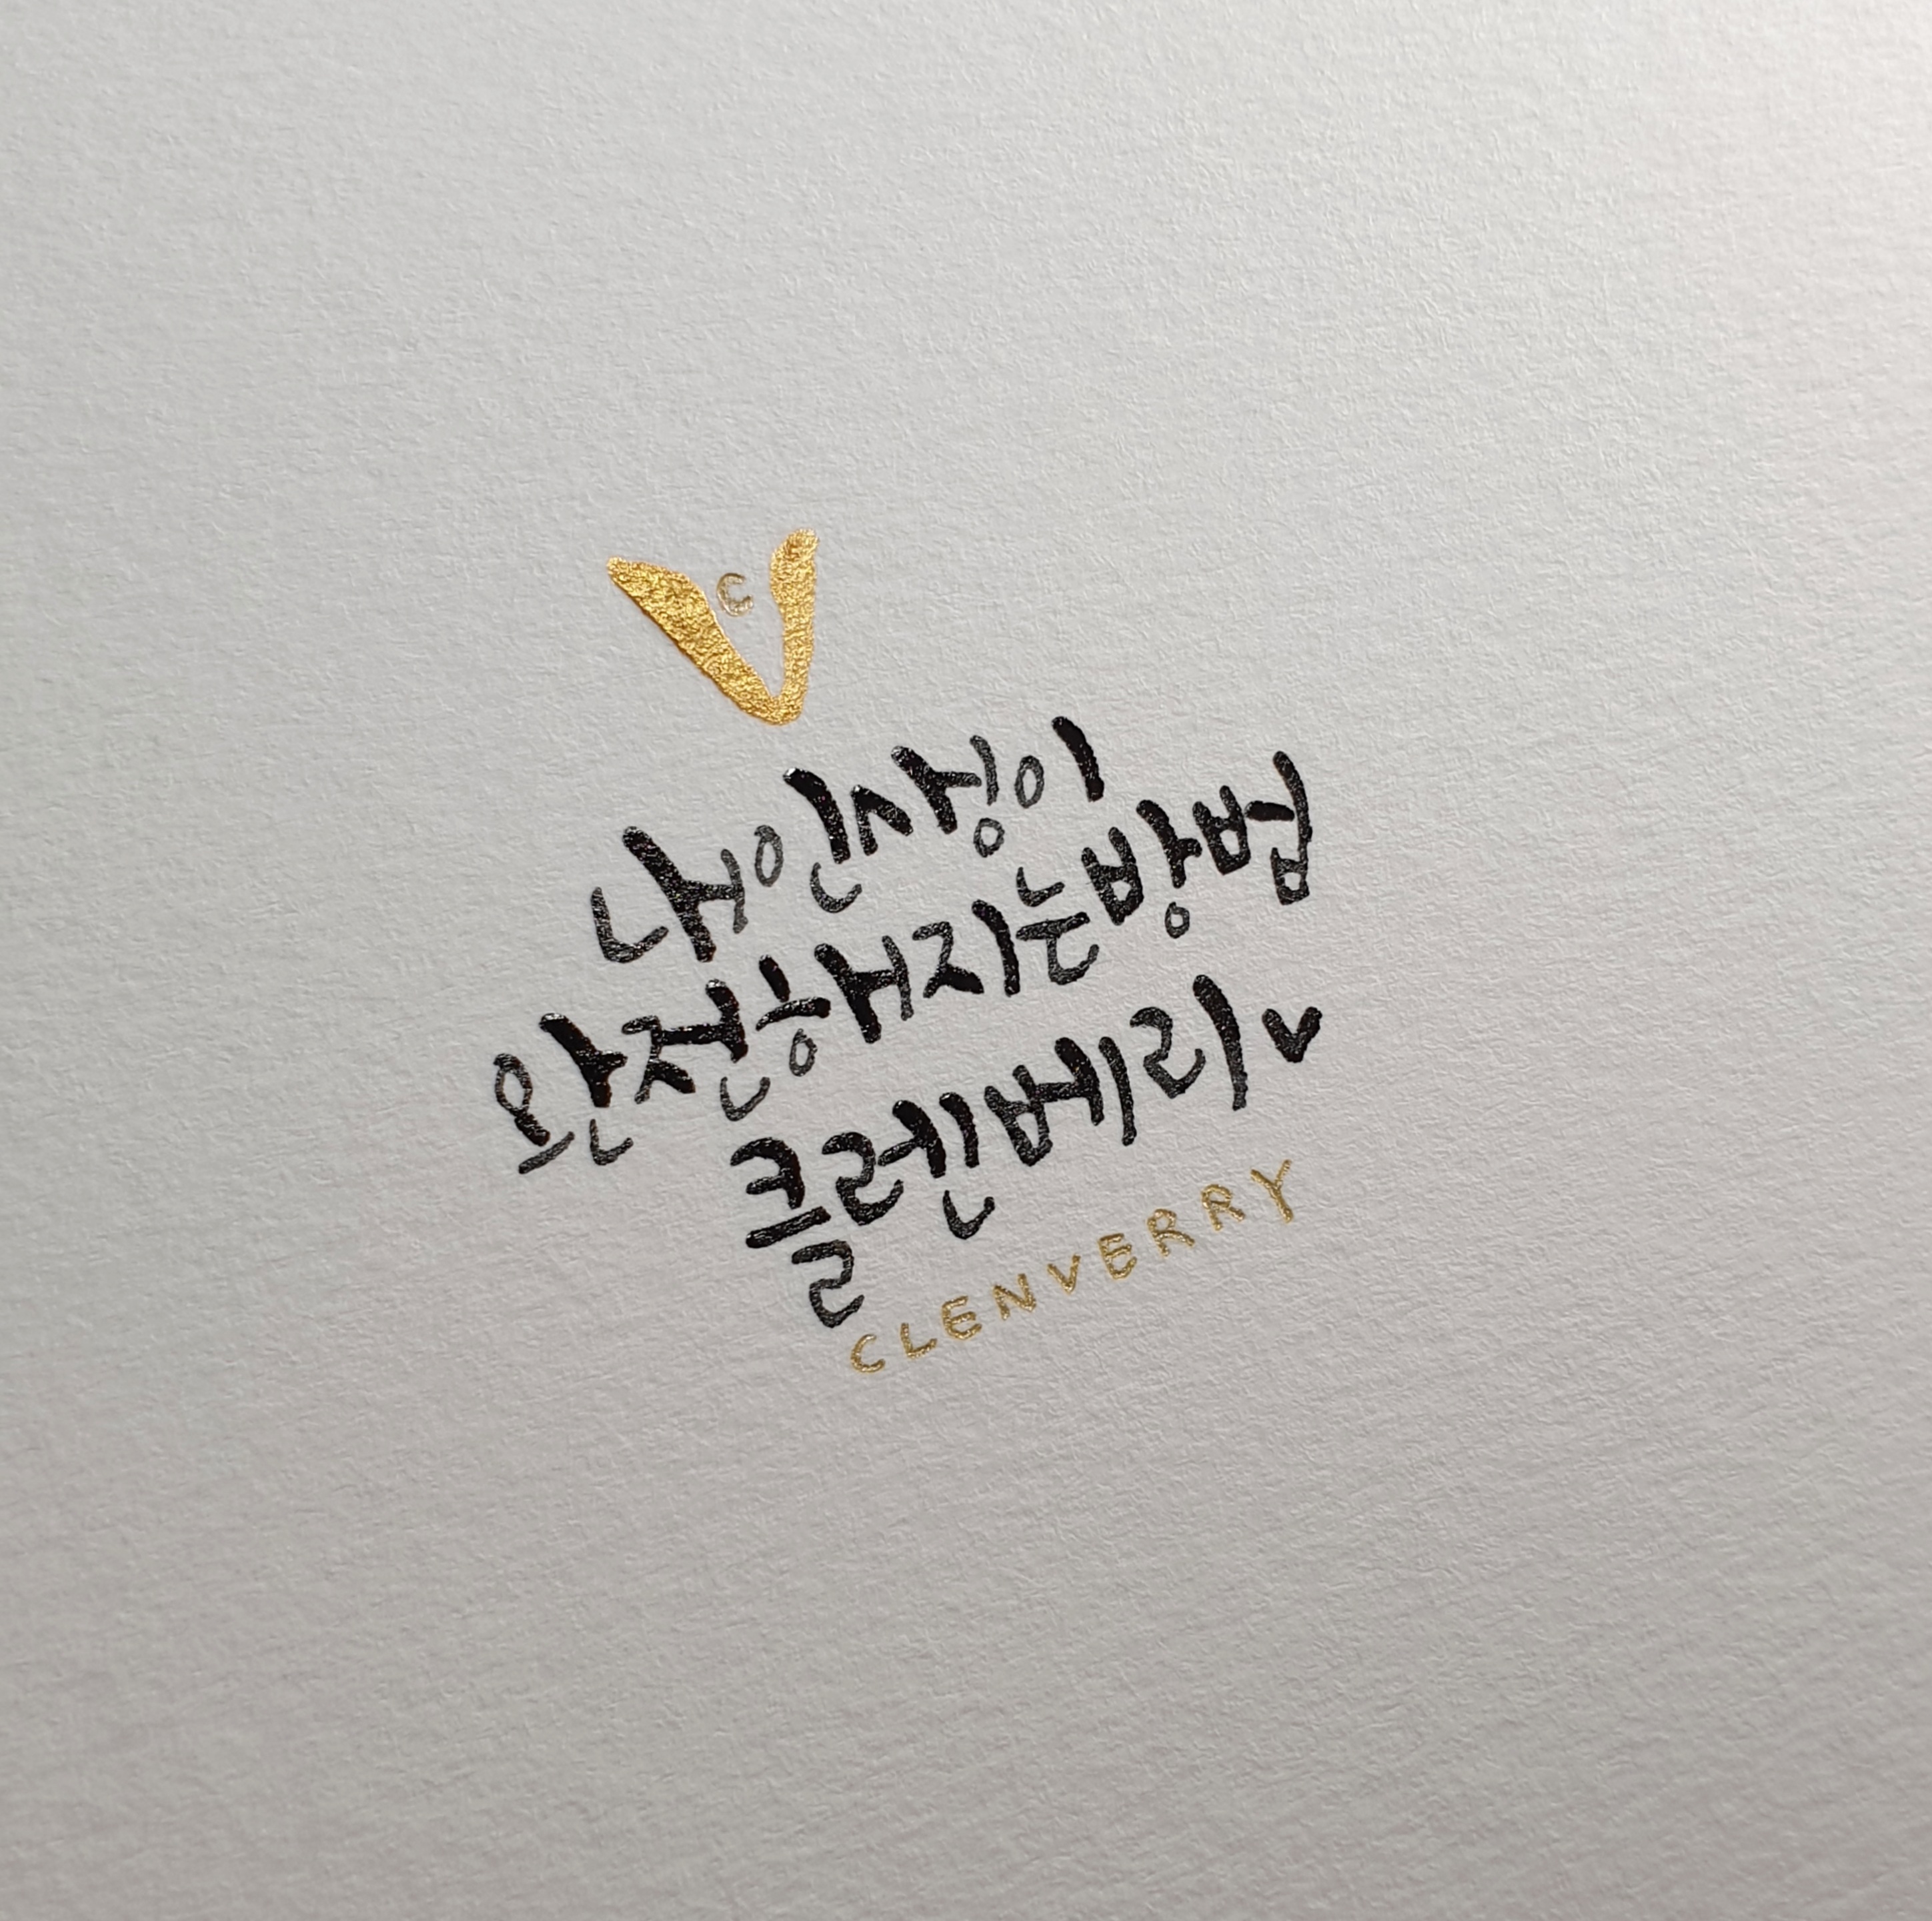 VC
내 인생이
완전해지는 방법
클렌베리♥
CLENVERRY